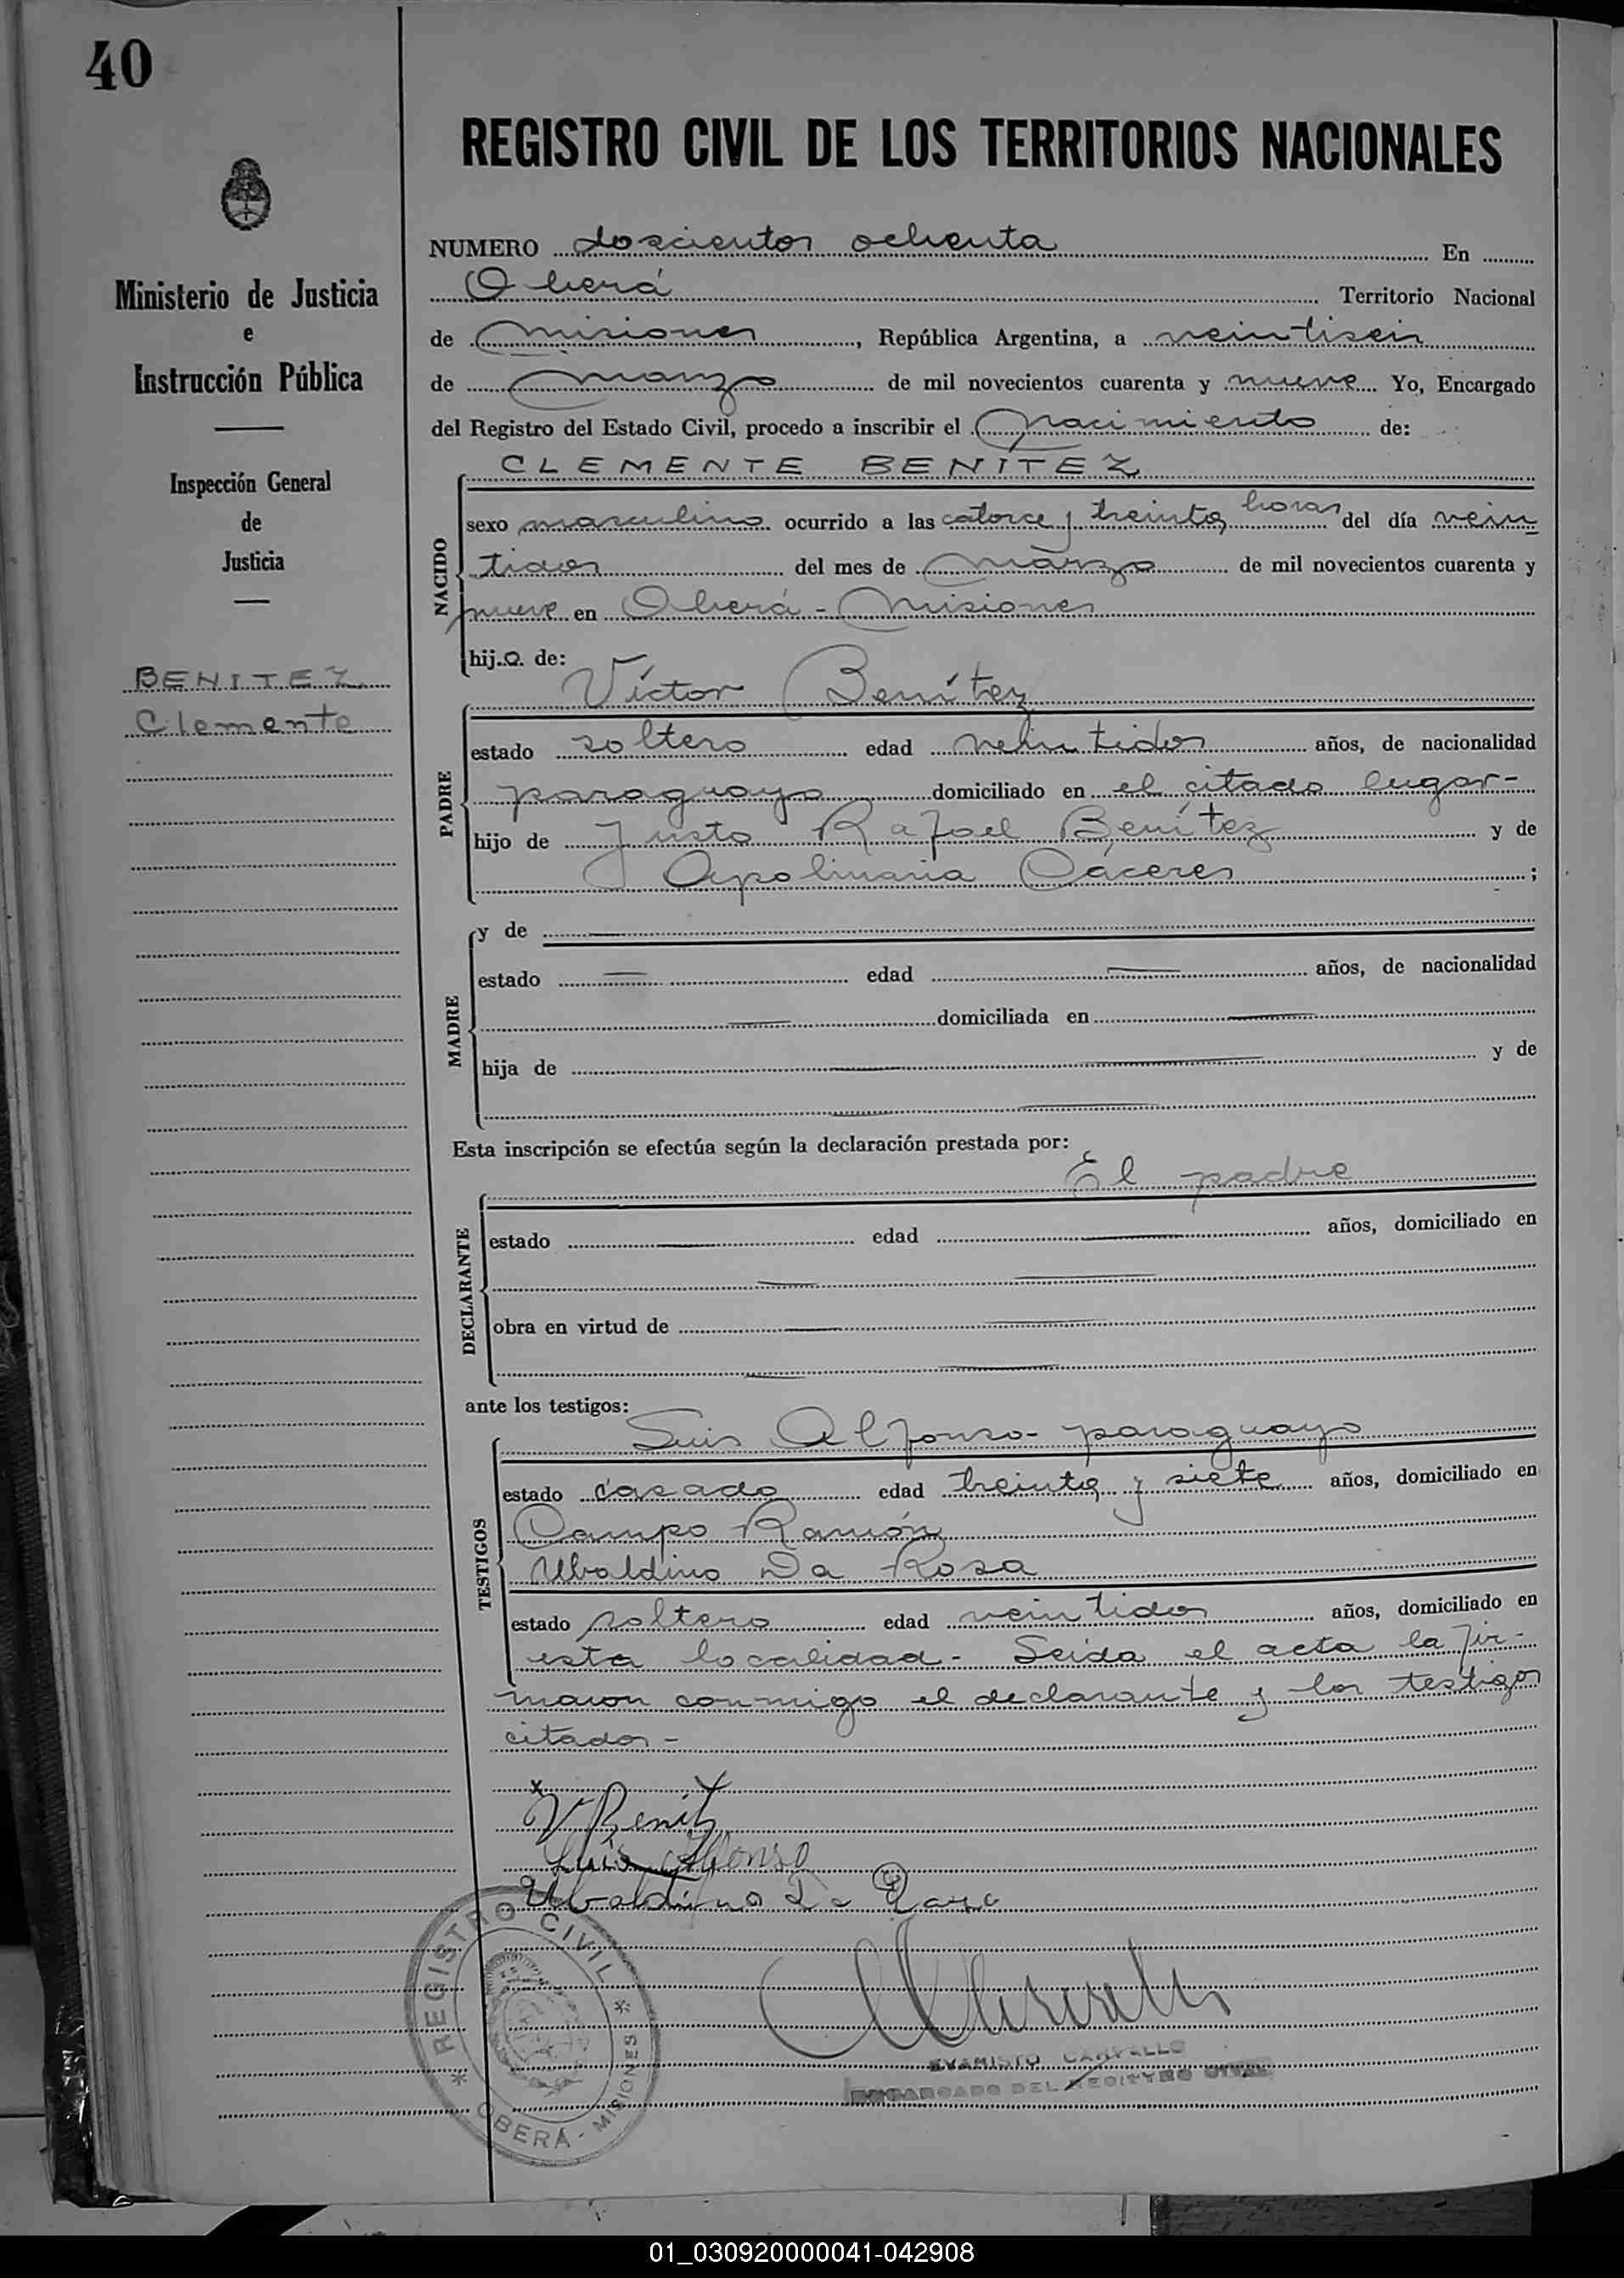 40
Ministerio de Justicia
e
Instrucción Pública
Inspección General
de
Justicia
BENITEZ
Clemente
REGISTRO CIVIL DE LOS TERRITORIOS NACIONALES
NUMERO doscientos ochenta En
Oberá Territorio Nacional
de Misiones, República Argentina, a veintiseis
de marzo de mil novecientos cuarenta y nueve Yo, Encargado
del Registro del Estado Civil, procedo a inscribir el nacimiento de:
CLEMENTE BENITEZ
NACIDO
sexo masculino ocurrido a las catorce y treinta horas del día vein
tidos del mes de marzo de mil novecientos cuarenta y
nueve en Oberá - Misiones
hijo de:
PADRE
Víctor Benítez
estado soltero edad veintidos años, de nacionalidad
paraguayo domiciliado en el citado lugar-
hijo de Justo Rafael Benítez y de
Apolinaria Cáceres ;
MADRE
y de
estado edad años, de nacionalidad
domiciliada en
hija de y de
Esta inscripción se efectúa según la declaración prestada por:
El padre
DECLARANTE
estado edad años, domiciliado en
obra en virtud de
ante los testigos:
TESTIGOS
Luis Alfonso - paraguayo
estado casado edad treinta y siete años, domiciliado en
Campo Ramón
Ubaldino Da Rosa
estado soltero edad veintidos años, domiciliado en
esta localidad - Leída el acta la fir-
maron conmigo el declarante y los testigos
citados -
x
V Benitz
Luis Alfonso
Ubaldino Da Rosa
REGISTRO CIVIL
OBERÁ - MISIONES
EVARISTO CARVALLO
ENCARGADO DEL REGISTRO CIVIL
01_030920000041-042908